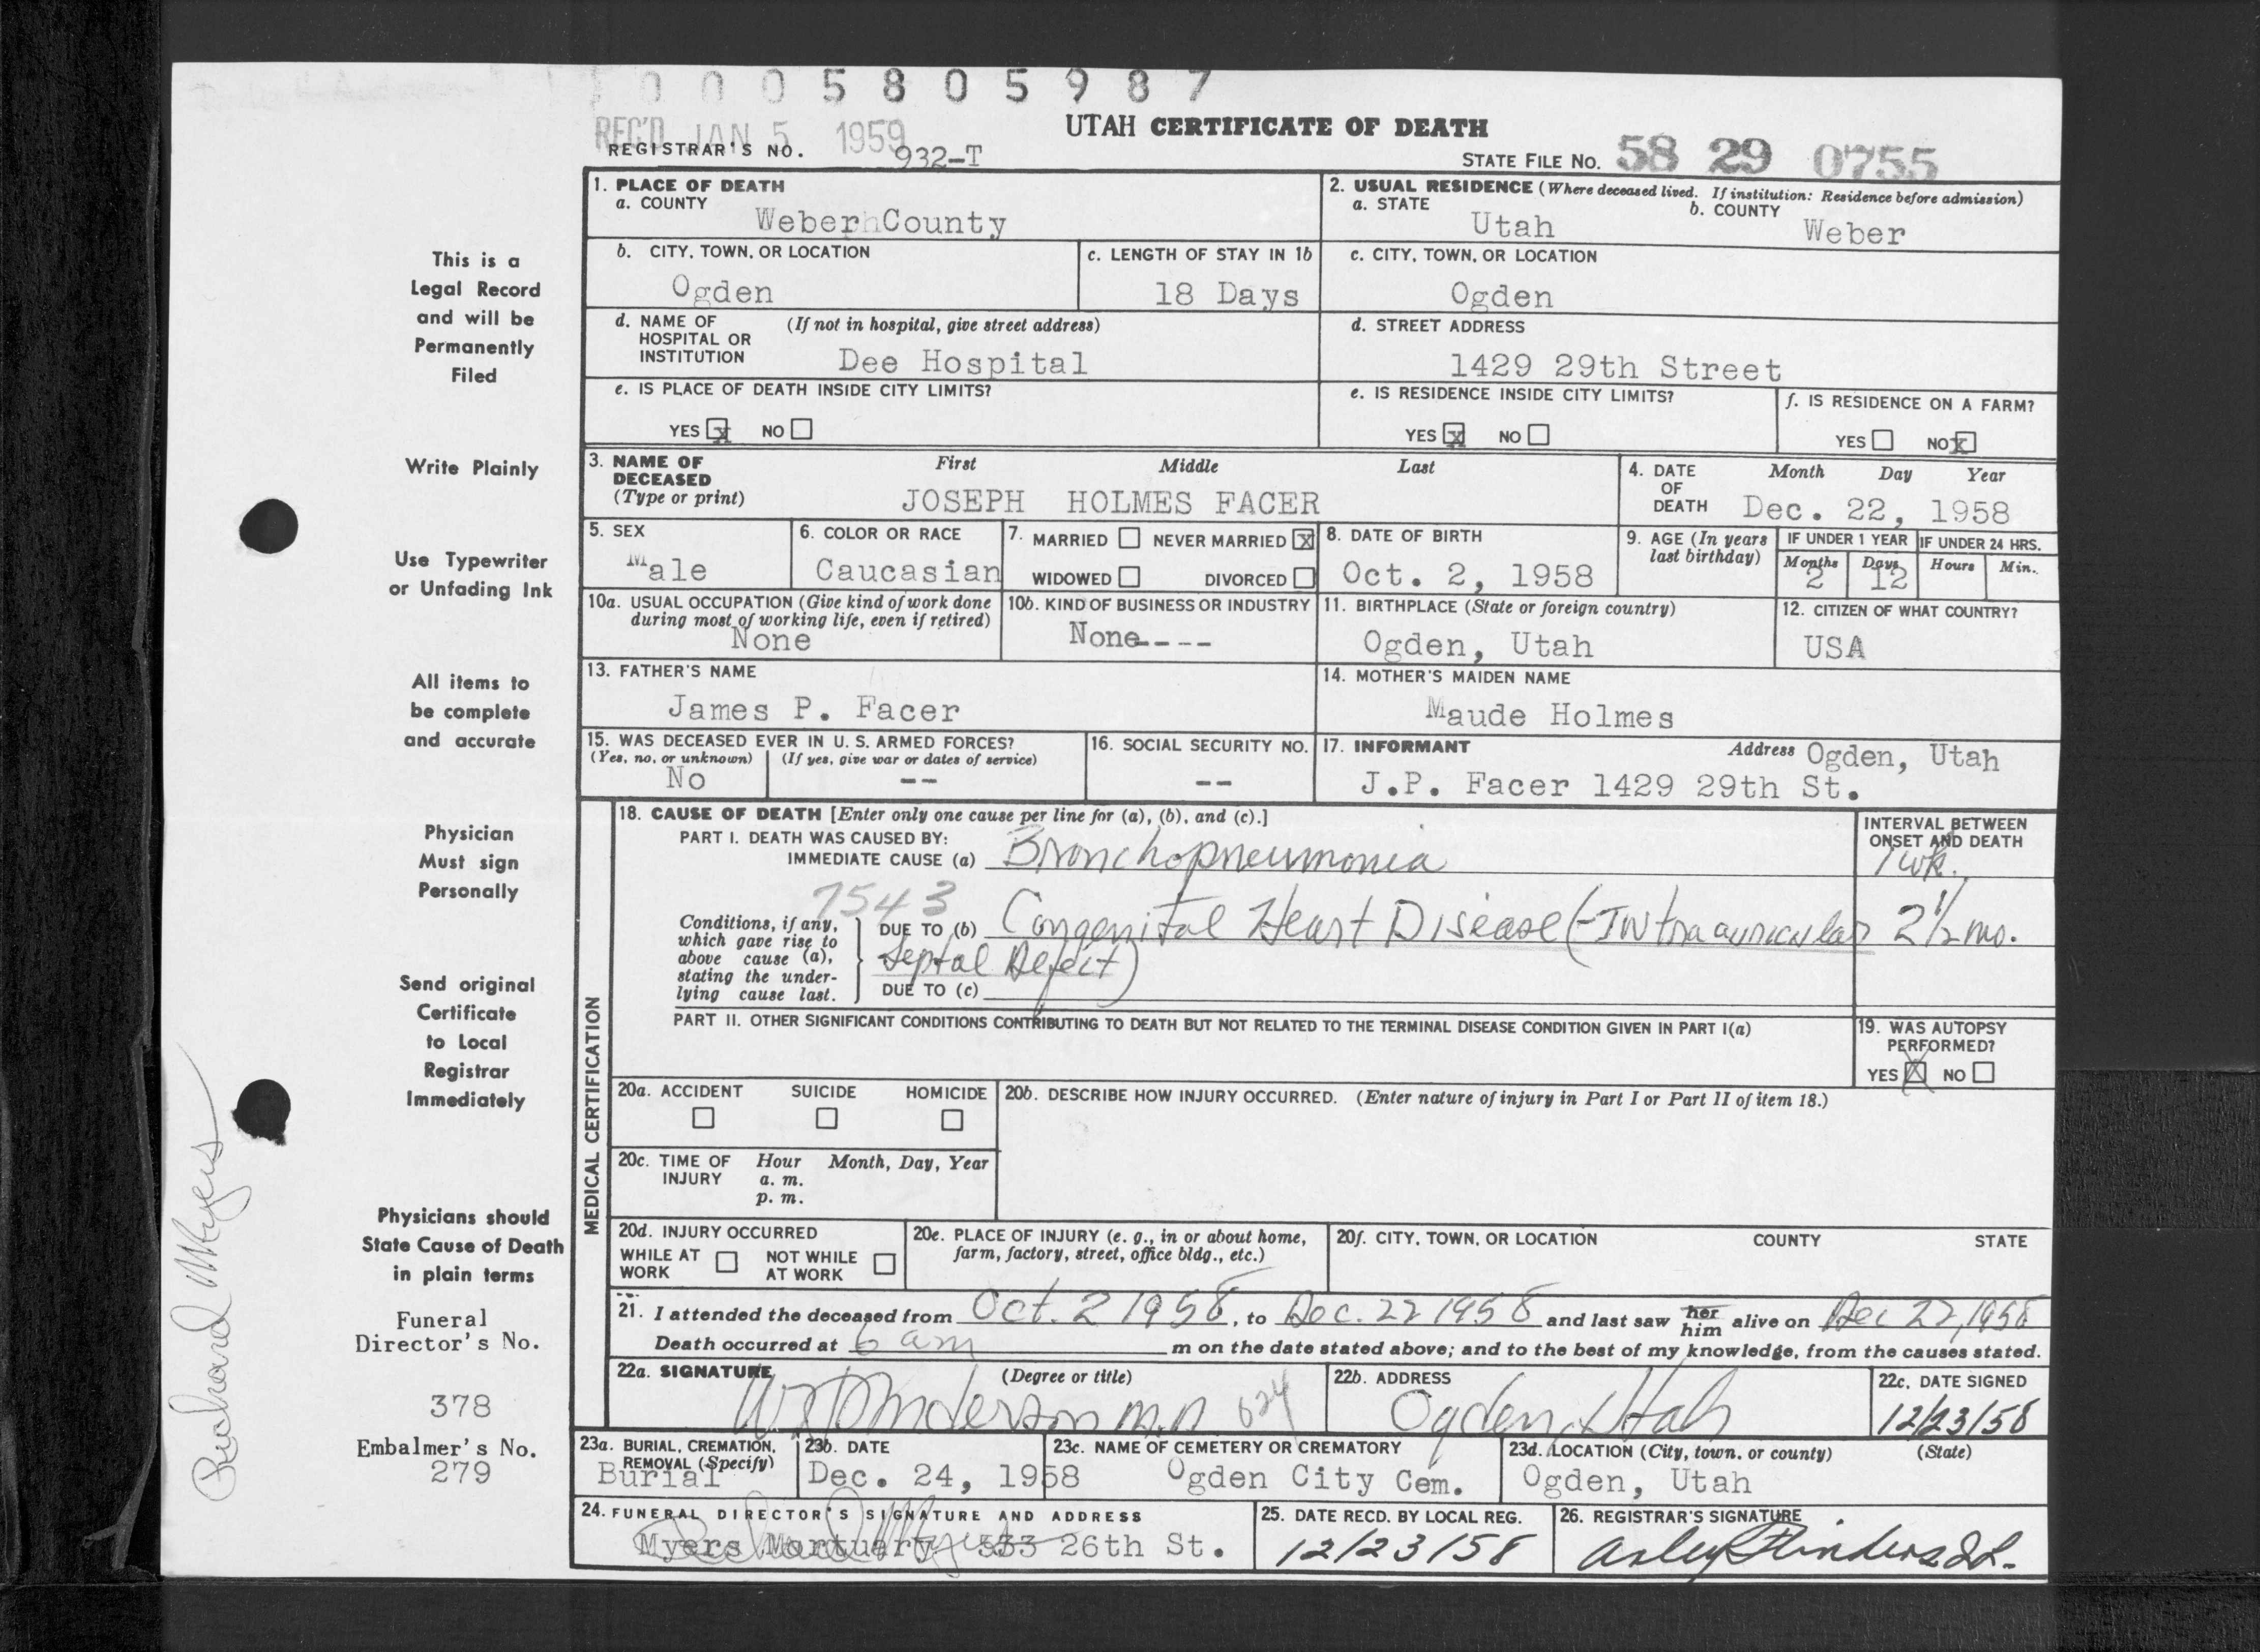 0 0 0 5 8 0 5 9 8 7
REC'D JAN 5 1959
UTAH CERTIFICATE OF DEATH
REGISTRAR'S NO. 932-T
STATE FILE NO. 58 29 0755
1. PLACE OF DEATH
a. COUNTY
Weber County
2. USUAL RESIDENCE (Where deceased lived. If institution: Residence before admission)
a. STATE
Utah
b. COUNTY
Weber
b. CITY, TOWN, OR LOCATION
Ogden
c. LENGTH OF STAY IN 1b
18 Days
c. CITY, TOWN, OR LOCATION
Ogden
d. NAME OF HOSPITAL OR INSTITUTION
(If not in hospital, give street address)
Dee Hospital
d. STREET ADDRESS
1429 29th Street
e. IS PLACE OF DEATH INSIDE CITY LIMITS?
YES X NO
e. IS RESIDENCE INSIDE CITY LIMITS?
YES X NO
f. IS RESIDENCE ON A FARM?
YES NO X
3. NAME OF DECEASED (Type or print)
First Middle Last
JOSEPH HOLMES FACER
4. DATE OF DEATH
Month Day Year
Dec. 22, 1958
5. SEX
Male
6. COLOR OR RACE
Caucasian
7. MARRIED NEVER MARRIED X
WIDOWED DIVORCED
8. DATE OF BIRTH
Oct. 2, 1958
9. AGE (In years last birthday)
IF UNDER 1 YEAR
Months Days
2 12
IF UNDER 24 HRS.
Hours Min.
10a. USUAL OCCUPATION (Give kind of work done during most of working life, even if retired)
None
10b. KIND OF BUSINESS OR INDUSTRY
None----
11. BIRTHPLACE (State or foreign country)
Ogden, Utah
12. CITIZEN OF WHAT COUNTRY?
USA
13. FATHER'S NAME
James P. Facer
14. MOTHER'S MAIDEN NAME
Maude Holmes
15. WAS DECEASED EVER IN U. S. ARMED FORCES?
(Yes, no, or unknown) (If yes, give war or dates of service)
No --
16. SOCIAL SECURITY NO.
--
17. INFORMANT Address Ogden, Utah
J.P. Facer 1429 29th St.
MEDICAL CERTIFICATION
18. CAUSE OF DEATH [Enter only one cause per line for (a), (b), and (c).]
PART I. DEATH WAS CAUSED BY:
IMMEDIATE CAUSE (a) Bronchopneumonia
INTERVAL BETWEEN ONSET AND DEATH
1 wk.
7543
Conditions, if any, which gave rise to above cause (a), stating the underlying cause last.
DUE TO (b) Congenital Heart Disease (-Intraauricular 2 1/2 mo.
Septal Defect)
DUE TO (c)
PART II. OTHER SIGNIFICANT CONDITIONS CONTRIBUTING TO DEATH BUT NOT RELATED TO THE TERMINAL DISEASE CONDITION GIVEN IN PART I(a)
19. WAS AUTOPSY PERFORMED?
YES X NO
20a. ACCIDENT SUICIDE HOMICIDE
20b. DESCRIBE HOW INJURY OCCURRED. (Enter nature of injury in Part I or Part II of item 18.)
20c. TIME OF INJURY
Hour Month, Day, Year
a. m.
p. m.
20d. INJURY OCCURRED
WHILE AT WORK NOT WHILE AT WORK
20e. PLACE OF INJURY (e. g., in or about home, farm, factory, street, office bldg., etc.)
20f. CITY, TOWN, OR LOCATION COUNTY STATE
21. I attended the deceased from Oct. 2 1958, to Dec. 22 1958 and last saw her him alive on Dec 22, 1958
Death occurred at 6 am m on the date stated above; and to the best of my knowledge, from the causes stated.
22a. SIGNATURE (Degree or title)
Anderson M.D. 624
22b. ADDRESS
Ogden, Utah
22c. DATE SIGNED
12/23/58
23a. BURIAL, CREMATION, REMOVAL (Specify)
Burial
23b. DATE
Dec. 24, 1958
23c. NAME OF CEMETERY OR CREMATORY
Ogden City Cem.
23d. LOCATION (City, town, or county) (State)
Ogden, Utah
24. FUNERAL DIRECTOR'S SIGNATURE AND ADDRESS
Myers Mortuary 533 26th St.
25. DATE RECD. BY LOCAL REG.
12/23/58
26. REGISTRAR'S SIGNATURE
This is a
Legal Record
and will be
Permanently
Filed
Write Plainly
Use Typewriter
or Unfading Ink
All items to
be complete
and accurate
Physician
Must sign
Personally
Send original
Certificate
to Local
Registrar
Immediately
Physicians should
State Cause of Death
in plain terms
Funeral
Director's No.
378
Embalmer's No.
279
Richard Myers